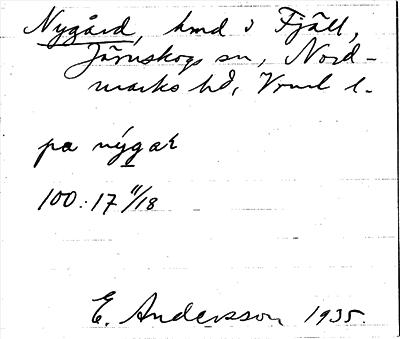 Nygård, hmd i Fjäll,
Järnskogs sn, Nord-
marks hd, Vrml l.
pa nýgaɽ
100:17 11/18
E. Andersson 1935.